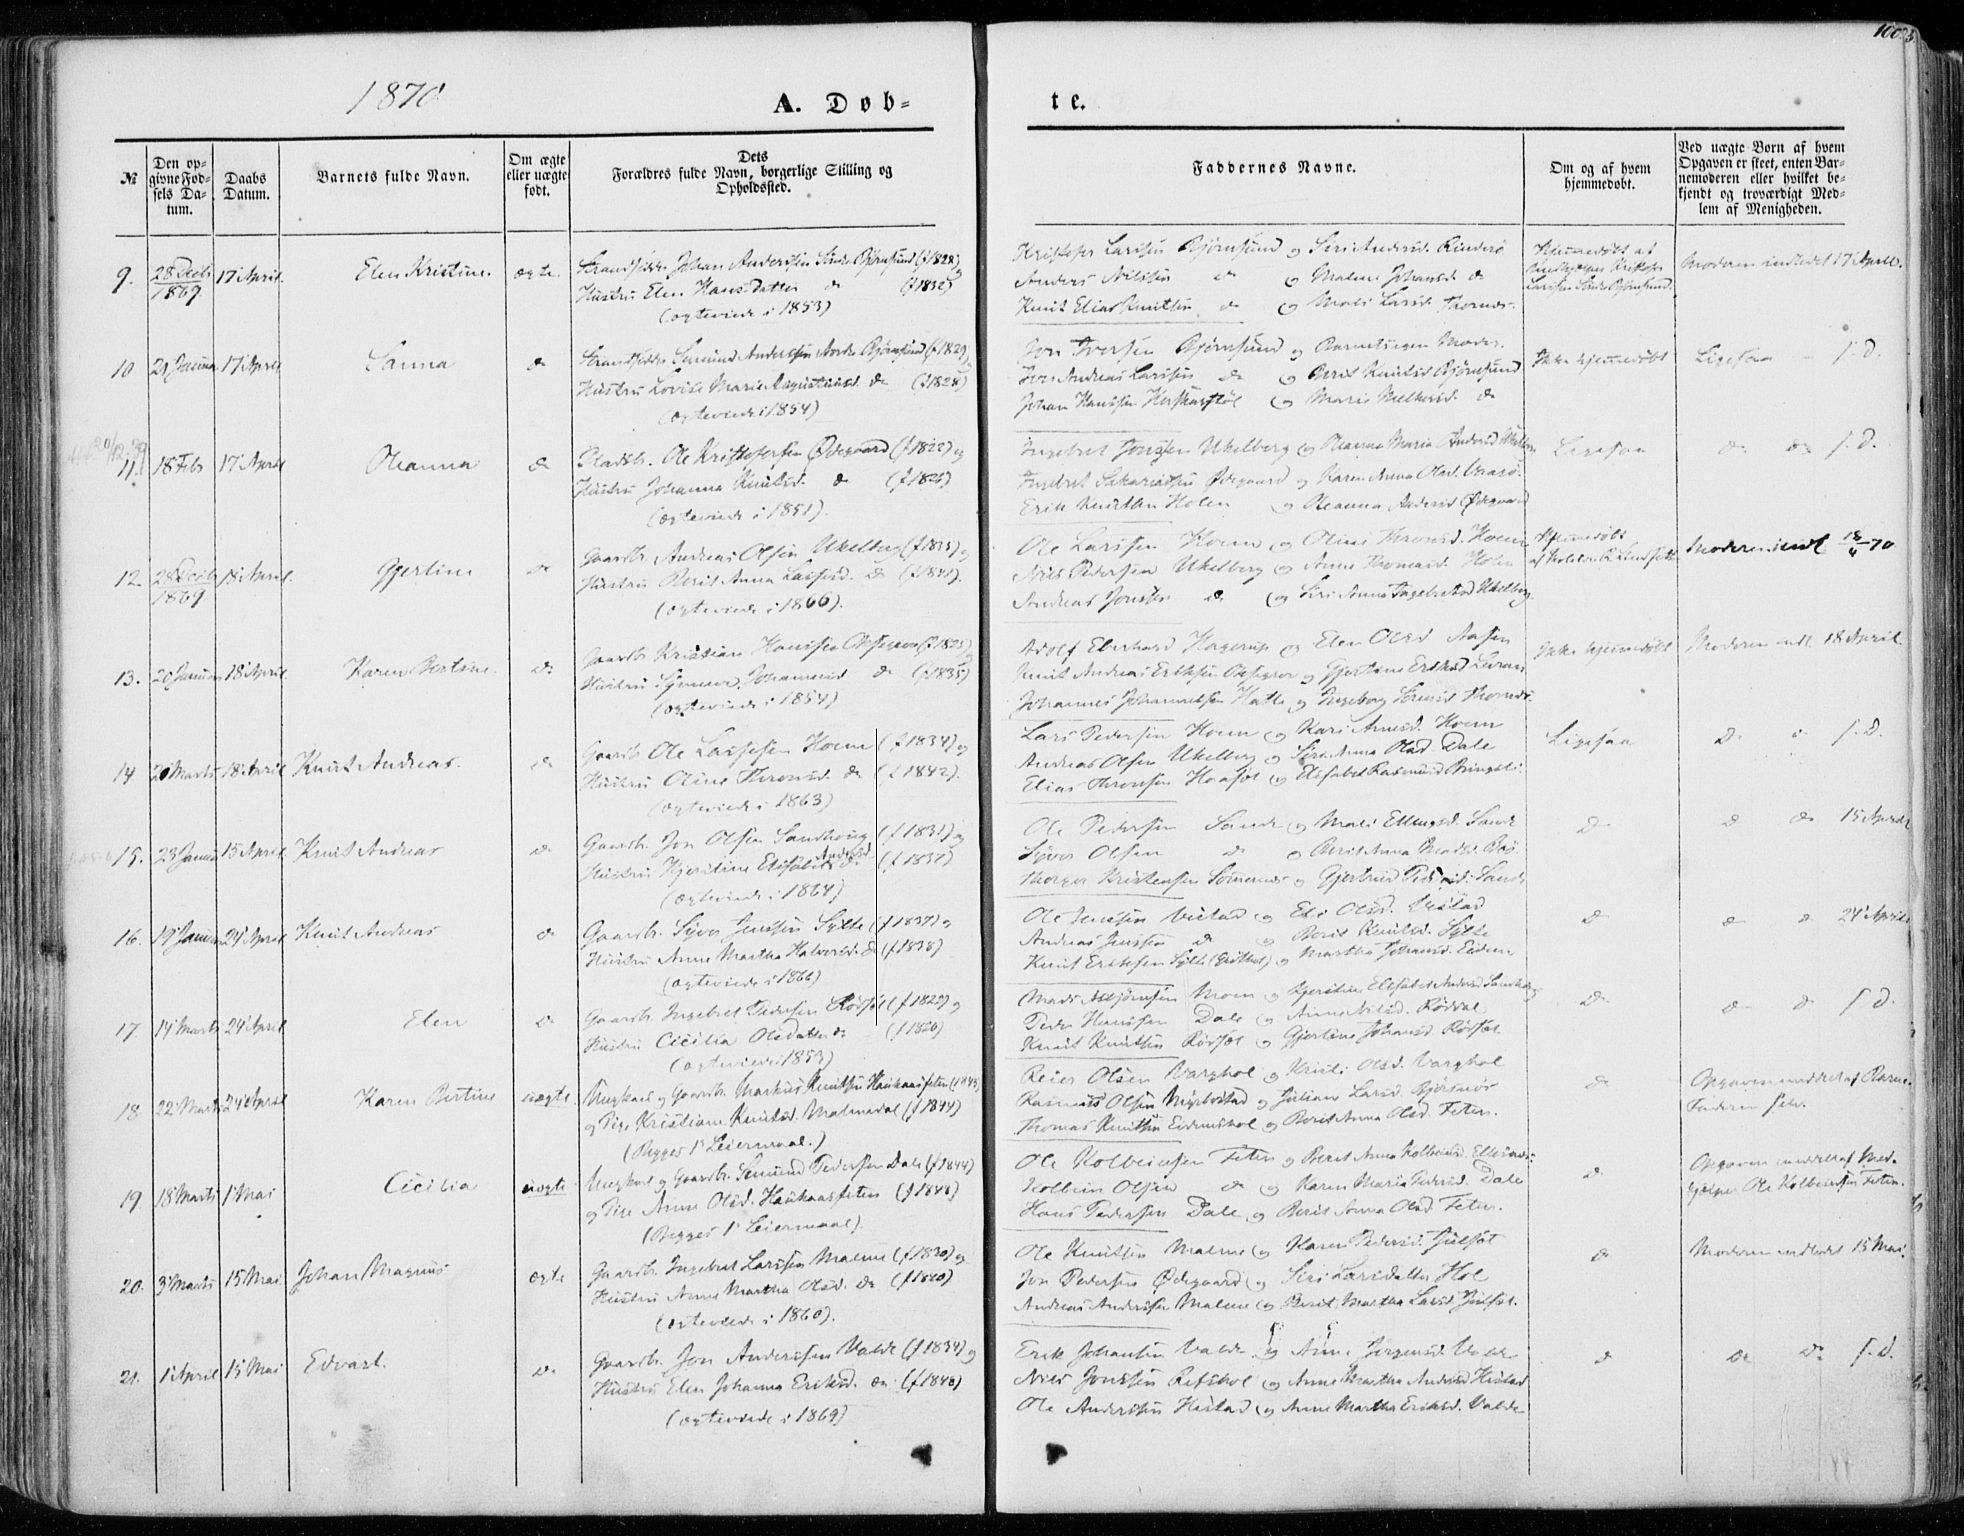 1870
A. Døb-
te.
№
Den op-
givne Fød-
sels Da-
tum.
Daabs
Datum.
Barnets fulde Navn.
Om ægte
eller uægte
født.
Dets
Forældres fulde Navn, borgerlige Stilling og
Opholdssted.
Faddernes Navne.
Om og af hvem
hjemmedøbt.
Ved uægte Børn af hvem
Opgaven er skeet, enten Bar-
nemoderen eller hvilket be-
kjendt og troværdigt Med-
lem af Menigheden.
9. 28 Decbr 1869 17 April Elen Kristine ægte
Johan Anderssen Søndre Bjørnsund (f 1828)
Hustru Elen Hansdatter do (f 1832)
(ægteviede i 1853)
Kristofer Larssen Bjørnsund og Siri Andersd. Rinderø
Anders Nilssen do og Malene Johansd. do
Knut Elias Knutsen do og Mali Larsd. Thornes
Hjemmedøbt af
Kristofer
Larssen Søndre Bjørnsund.
Moderen indledet 17 April.
10 17 April Lanna do
Anderssen Nordre Bjørnsund (f 1829)
Hustru Lovise Marie Augustinusd. do (f 1828)
(ægteviede i 1854)
Jon Iversen Bjørnsund og Barnets egen Moder.
Iver Andreas Larssen do og Berit Knutsd. Bjørnsund
Johan Hanssen og Marie do
Ikke hjemmedøbt Ligesaa f. D.
11. 18 Febr 17 April Oleanna do
Pladsbr. Ole Kristofersen Ødegaard (f 1822) og
Hustru Johanna Knutsd. do
(ægteviede i 1851).
Ingebret Jonssen Ukelberg og Oleanna Maria Andersd. Ukelberg
Ødegaard og Karen Anna Olsd. Vaasø.
Erik Knutsen Holen og Oleanna Andersd. Ødegaard
Ligesaa do do f. D.
12. 28 Decbr 1869 18 April Gjertine do
Gaardb. Andreas Olsen Ukelberg (f 1815) og
Hustru Berit Anna Lassesd. do (f 1841).
(ægteviede i 1866).
Ole Larssen Hoem og Oline Thronsd. Hoem
Nils Pedersen Ukelberg og Anne Thomasd. Holen
Andreas Jonssen do og Siri Anna Ingebretsd. Ukelberg
Hjemmedøbt
Moderen indl. 18/4 70
13. 20 Januar 18 April Karen Bertine do
Gaardb. Kristian Hanssen (f 1825)
Hustru Synneve Johannesd. do (f 1835)
(ægteviede i 1854)
Adolf Eberhard Hagerup og Elen Olsd. Aasen
Knut Andreas Eriksen og Gjertine Eriksd.
Johannes Johannessen Hatle og Ingeborg Thornes
Ikke hjemmedøbt Moderen indl. 18 April
14 20 Marts 18 April Knut Andreas do
Gaardb. Ole Lassesen Hoem (f 1834) og
Hustru Oline Thronsd. do (f 1842).
(ægteviede i 1863)
Lars Pedersen Hoem og Kari Arnesd. Hoem
Andreas Olsen Ukelberg og Siri Anna Olsd. Dale
Elias Thronsen og Elisabet Rasmusd.
Ligesaa do do f. D.
15. 23 Januar 15 April Knut Andreas do
Gaardb. Jon Olsen Sandhoug (f 1831) og
Hustru Kjerstine Elisabet Andersd. do (f 1837)
(ægteviede i 1864)
Ole Pedersen Sande og Mali Ellingsd. Sande
Syver Olsen do og Berit Anna Madsd.
Thorger Kristensen og Gjertrud Pedersd. Sande
do do do 15 April
16. 19 Januar 24 April Knut Andreas do
Gaardb. Syver Jenssen Sylte (f 1837) og
Hustru Anne Martha Halvorsd. do (f 1838)
(ægteviede i 1866)
Ole Jenssen Vestad og Eli Olsd. Vestad
Andreas Jenssen do og Berit Knutsd. Sylte
Knut Eriksen Sylte og Martha Johansd. Eidem
do do do 24 April
17 14 Marts 24 April Elen do
Gaardb. Ingebret Pedersen Rødsæt (f 1829) og
Hustru Cicilia Olsdatter do (f 1826)
(ægteviede i 1853)
Mads Asbjørnsen Moen og Kjerstine Elisabet Andersd. Sandhoug
Peder Hanssen Dale og Anne Nilsd. Rødsæt
Knut Knutsen Rødsæt og Gjertine Johansd. Rødsæt
do do do f. D.
18 22 Marts 24 April Karen Bertine uægte
Ungkarl og Gaardbr. Markus Knutsen Haukaasfeten (f 1843)
og Pige Kristiane Knutsd. Malmedal (f 1844)
(Begges 1' Leiermaal.)
Reier Olsen Varghol og Kristi Olsd. Varghol
Rasmus Olsen og Juliane Larsd.
Thomas Knutsen Eidemshol og Berit Anna Olsd. Feten.
do Opgaven meddelt af Barne-
Faderen selv.
19. 18 Marts 1 Mai Cicilia uægte
Ungkarl og Gaardbr. Pedersen Dale (f 1844)
og Pige Anne Olsd. Haukaasfeten (f 1848)
(Begges 1' Leiermaal).
Ole Kolbeinsen Feten og Berit Anna Kolbeinsd.
Kolbein Olsen do og Karen Maria Pedersd. Dale
Hans Pedersen Dale og Berit Anna Olsd. Feten.
do Opgaven meddelt af Med-
hjelper Ole Kolbeinsen Feten.
20. 3 Marts 15 Mai Johan Magnus ægte
Gaardb. Ingebret Larssen Malme (f 1830) og
Hustru Anne Martha Olsd. do
(ægteviede i 1860).
Ole Knutsen Malme og Karen Pedersd. Julsæt
Jon Pedersen Ødegaard og Siri Larsdatter Hol
Andreas Anderssen Malme og Berit Martha Larsd. Julsæt.
do Moderen indledet 15 Mai
21. 1 April 15 Mai Edvart. do
Gaardb. Jon Anderssen Valde (f 1834) og
Hustru Elen Johanna Eriksd. do (f 1848)
(ægteviede i 1869)
Erik Johansen Valde og Anne Jørgensd. Valde
Nils Jonssen og Anne Martha Andersd. Hestad
Ole Anderssen Hestad og Anne Martha Eriksd. Valde
do do do f. d.